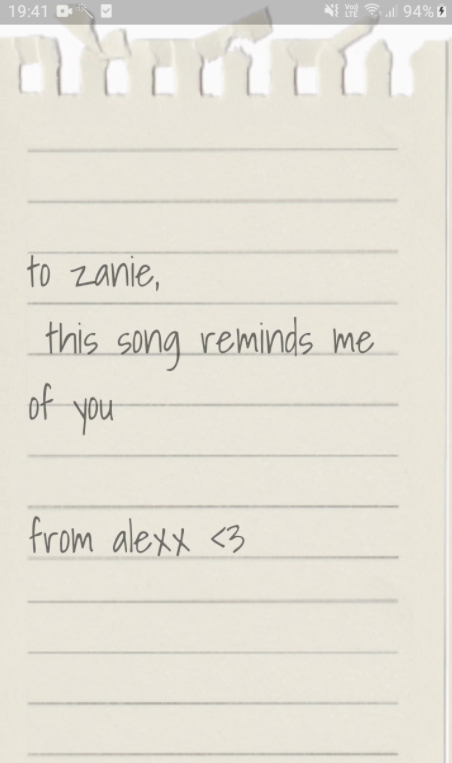 19:41 94%
to zanie,
this song reminds me
of you
from alexx <3